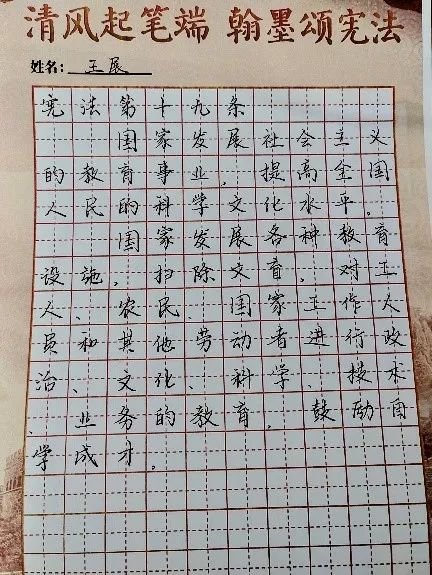 清风起笔端 翰墨颂宪法
姓名：王展
宪法第十九条
国家发展社会主义
的教育事业，提高全国
人民的科学文化水平。
国家发展各种教育
设施，扫除文盲，对工
人、农民、国家工作人
员和其他劳动者进行政
治、文化、科学、技术
、业务的教育，鼓励自
学成才。